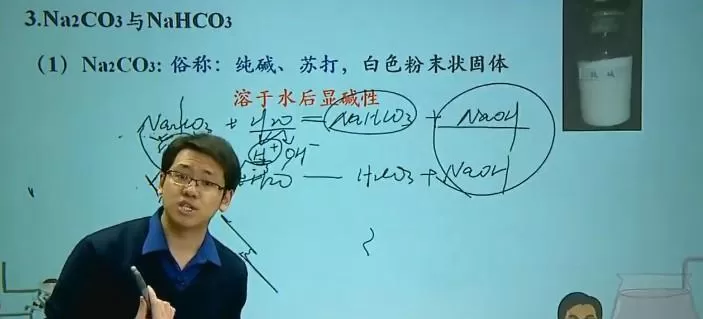 3.Na₂CO₃与NaHCO₃
（1）Na₂CO₃: 俗称：纯碱、苏打，白色粉末状固体
溶于水后显碱性
Na₂CO₃ + H₂O = NaHCO₃ + NaOH
H⁺ OH⁻
H₂O — H₂CO₃ + NaOH